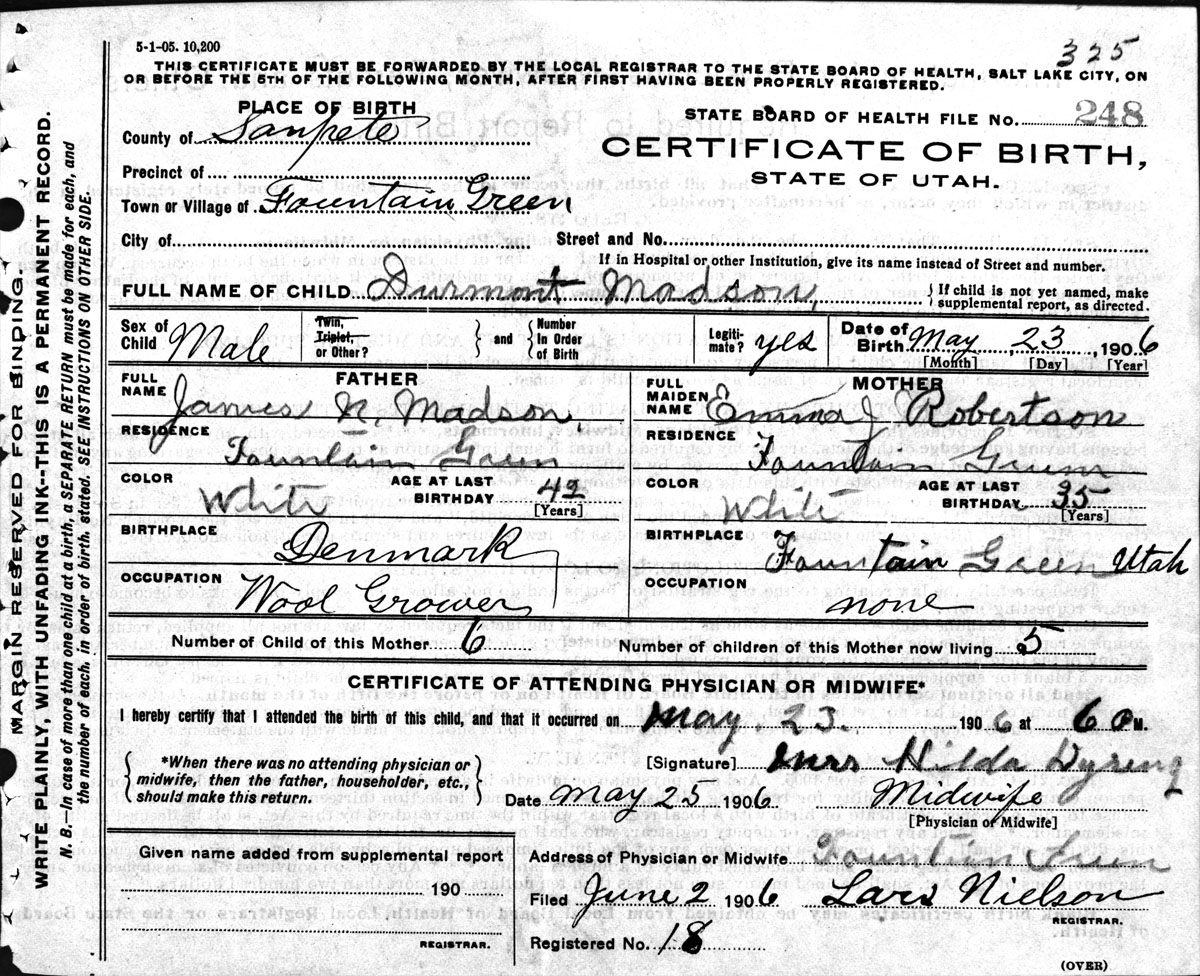 5-1-05. 10,200
325
THIS CERTIFICATE MUST BE FORWARDED BY THE LOCAL REGISTRAR TO THE STATE BOARD OF HEALTH, SALT LAKE CITY, ON
OR BEFORE THE 5TH OF THE FOLLOWING MONTH, AFTER FIRST HAVING BEEN PROPERLY REGISTERED.
PLACE OF BIRTH
STATE BOARD OF HEALTH FILE No. 248
County of Sanpete
CERTIFICATE OF BIRTH,
Precinct of
STATE OF UTAH.
Town or Village of Fountain Green
City of Street and No.
If in Hospital or other Institution, give its name instead of Street and number.
FULL NAME OF CHILD Durmont Madson { If child is not yet named, make supplemental report, as directed.
Sex of Child Male Twin, Triplet, or Other? } and { Number In Order of Birth Legiti-mate? yes Date of Birth May 23, 1906
[Month] [Day] [Year]
FATHER MOTHER
FULL NAME James N. Madson FULL MAIDEN NAME Emma J. Robertson
RESIDENCE Fountain Green RESIDENCE Fountain Green
COLOR White AGE AT LAST BIRTHDAY 42 [Years] COLOR White AGE AT LAST BIRTHDAY 35 [Years]
BIRTHPLACE Denmark BIRTHPLACE Fountain Green Utah
OCCUPATION Wool Grower OCCUPATION none
Number of Child of this Mother 6 Number of children of this Mother now living 5
CERTIFICATE OF ATTENDING PHYSICIAN OR MIDWIFE*
I hereby certify that I attended the birth of this child, and that it occurred on May. 23. 1906 at 6 P M.
{ *When there was no attending physician or midwife, then the father, householder, etc., should make this return. }
[Signature] Mrs Hilda Dyreng
Date May 25 1906. Midwife
[Physician of Midwife]
Given name added from supplemental report
Address of Physician or Midwife Fountain Green
190
Filed June 2 1906 Lars Nielson
REGISTRAR.
REGISTRAR.
Registered No. 18
(OVER)
MARGIN RESERVED FOR BINDING.
WRITE PLAINLY, WITH UNFADING INK--THIS IS A PERMANENT RECORD.
N. B.--In case of more than one child at a birth, a SEPARATE RETURN must be made for each, and
the number of each, in order of birth, stated. SEE INSTRUCTIONS ON OTHER SIDE.